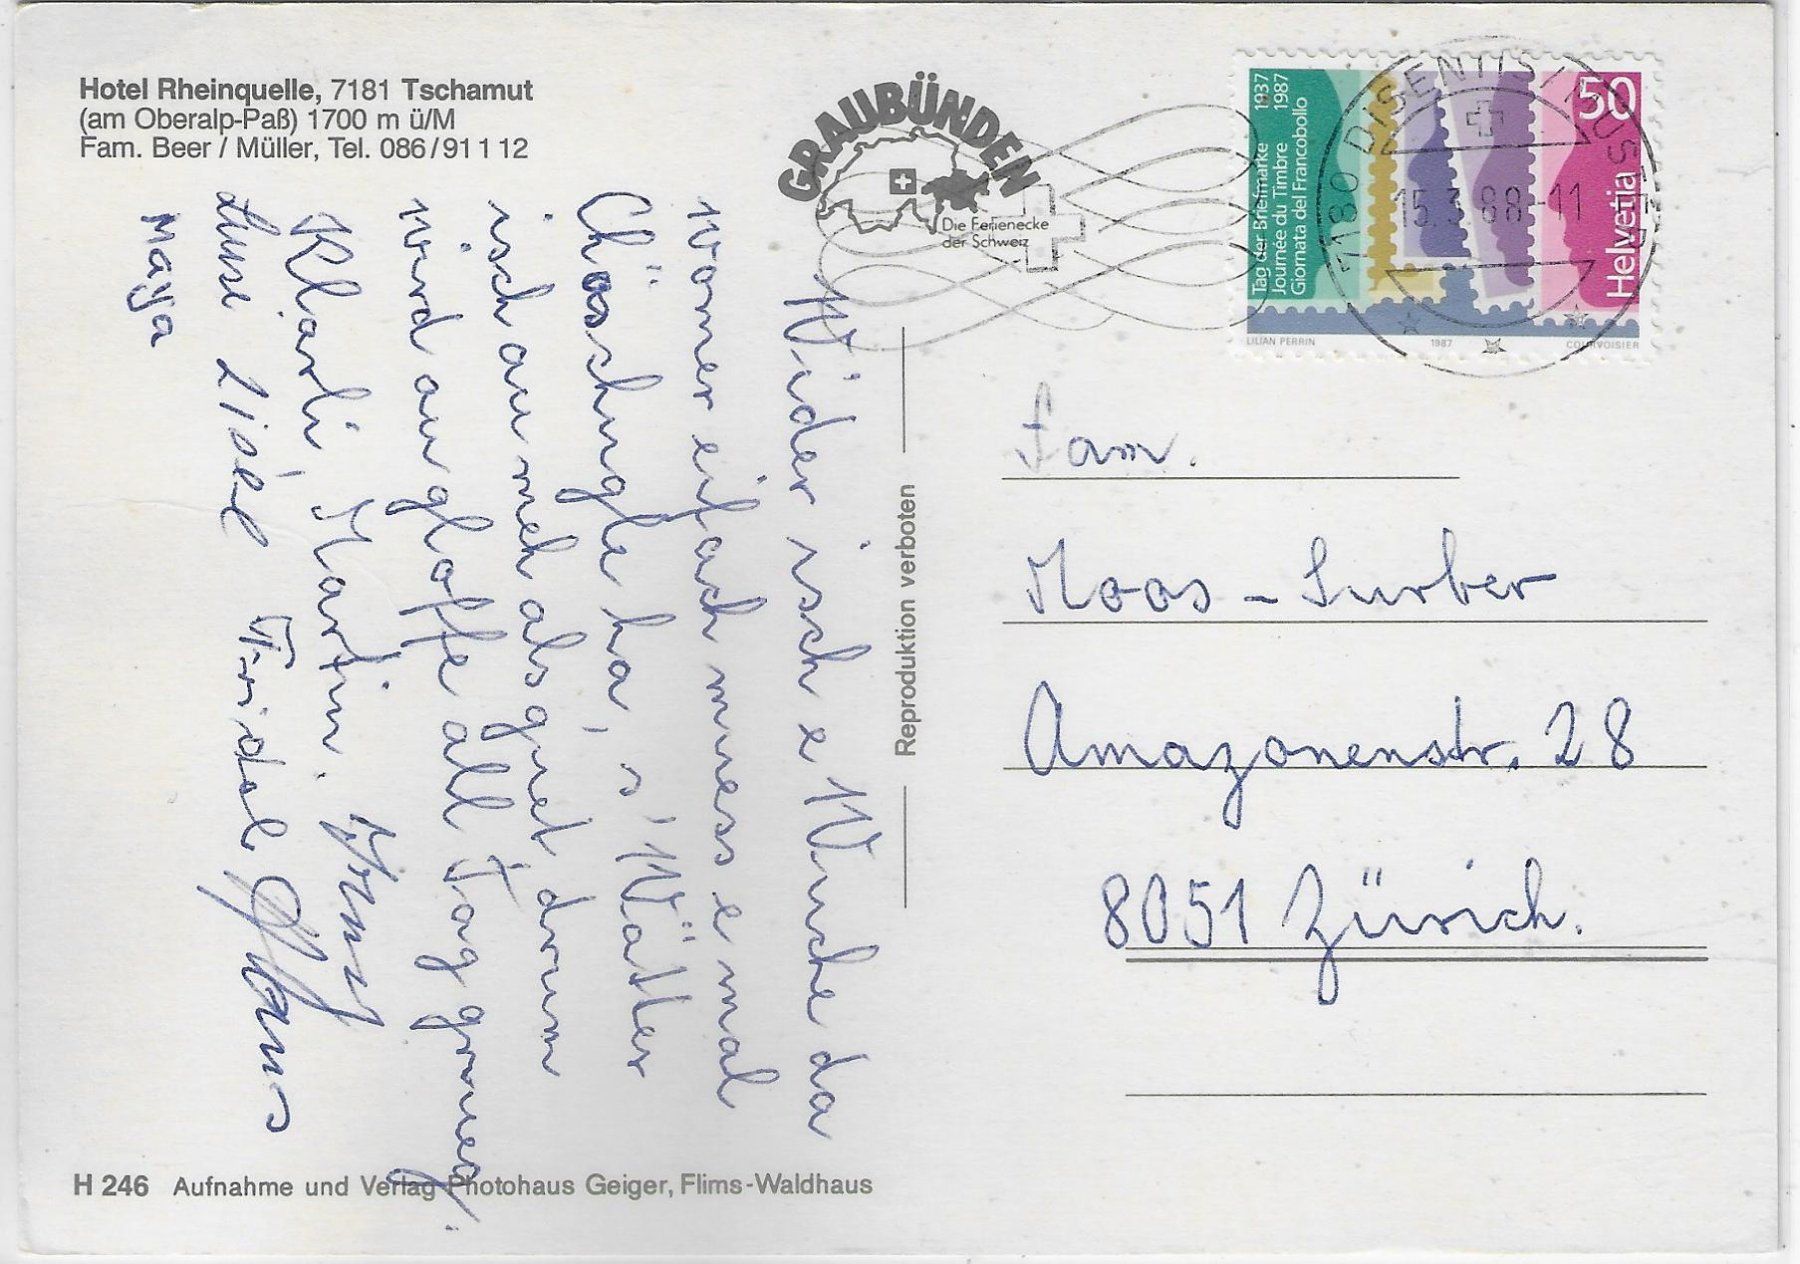 Hotel Rheinquelle, 7181 Tschamut
(am Oberalp-Paß) 1700 m ü/M
Fam. Beer / Müller, Tel. 086/91 1 12
GRAUBÜNDEN
Die Ferienecke
der Schweiz
Tag der Briefmarke 1937
Journée du Timbre 1987
Giornata del Francobollo
50
Helvetia
LILIAN PERRIN 1987 COURVOISIER
7180 DISENTIS/MUSTER
15.3.88-11
Wider isch e Wuche da
womer eifach muess e mal
Chöschugle ha, s'Wätter
isch au meh als guet drum
wird au gloffe all Tag gnueg.
Klärli, Martin.
Lisel Fridol Hans
Maya
Reproduktion verboten
Fam.
Moos-Surber
Amazonenstr. 28
8051 Zürich.
H 246 Aufnahme und Verlag Photohaus Geiger, Flims-Waldhaus